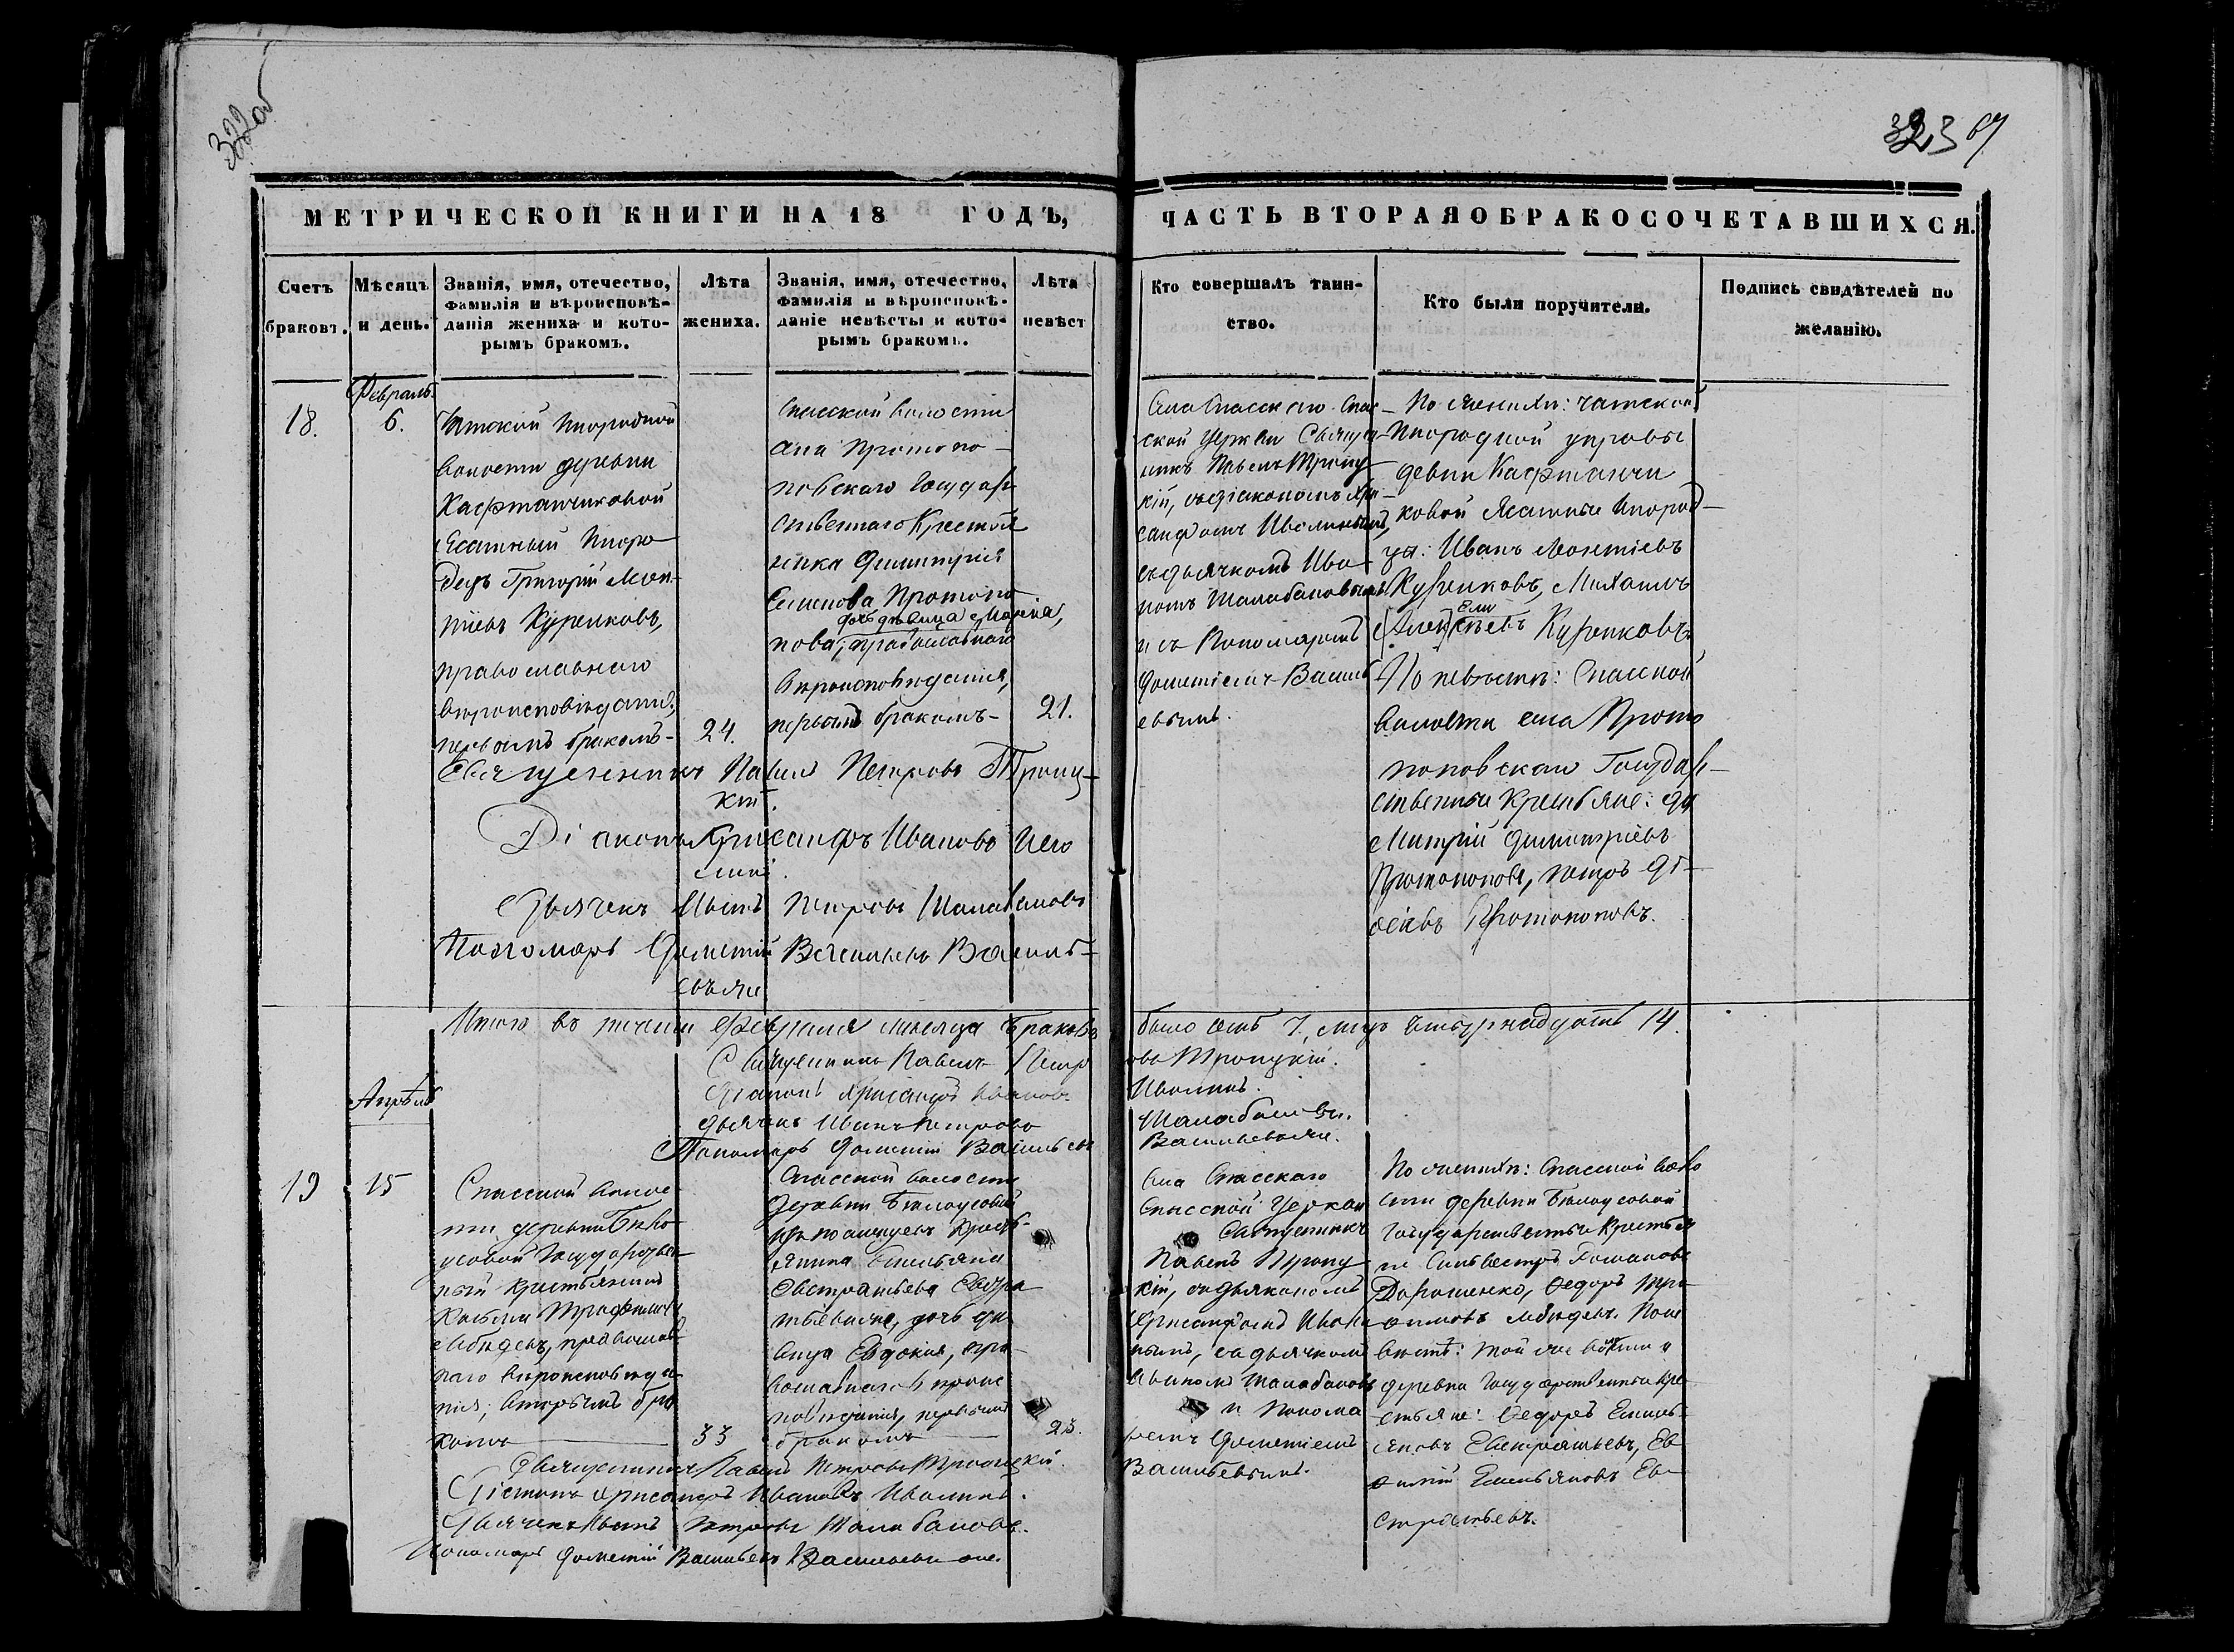 322об
323 67
МЕТРИЧЕСКОЙ КНИГИ НА 18 ГОДЪ,
ЧАСТЬ ВТОРАЯ О БРАКОСОЧЕТАВШИХСЯ.
Счетъ браковъ.
Мѣсяцъ и день.
Званія, имя, отечество,
фамилія и вѣроисповѣ-
данія жениха и кото-
рымъ бракомъ.
Лѣта
жениха.
Званія, имя, отечество,
фамилія и вѣроисповѣ-
даніе невѣсты и кото-
рымъ бракомъ.
Лѣта
невѣст
Кто совершалъ таин-
ство.
Кто были поручители.
Подпись свидѣтелей по
желанію.
18.
Февраль
6.
Чатской Инородной
волости деревни
Кафтанчиковой
Ясашный Иноро
децъ Григорій Леон
тіевъ Куренковъ,
православнаго
вѣроисповѣданія,
первымъ бракомъ-
24.
Спасской волости
села Протопо-
повскаго Государ
ственнаго Крестья
нина Димитрія
Семенова Протопо
дочь дѣвица Марія,
пова, православнаго
вѣроисповѣданія,
первымъ бракомъ-
21.
Села Спасскаго Спас-
ской Церкви Священ-
никъ Павелъ Троиц
кій, съ діакономъ Хри-
санфомъ Иволинымъ,
съ дьячкомъ Ива
номъ Шалабановымъ
и съ Пономаремъ
Дометіемъ Василь
евымъ.
По женихѣ: Чатской
Инородной управы
девни Кафтанчи
ковой Ясашные Инород-
цы: Иванъ Леонтіевъ
Куренковъ, Михаилъ
Алексѣевъ Куренковъ.
По невѣстѣ: Спасской
волости села Прото
поповскаго Государ-
ственные Крестьяне: Ди
митрій Димитріевъ
Протопоповъ, Петръ
Протопоповъ.
Священникъ Павелъ Петровъ Троиц-
кій.
Діаконъ Хрисанфъ Ивановъ Иво
линъ.
Дьячекъ Иванъ Петровъ Шалабановъ
Пономарь Дометій Васильевъ Василь-
евъ же
Итого въ теченіи Февраля мѣсяца браковъ было семь 7, лицъ четырнадцать 14.
Священникъ Павелъ Петровъ Троицкій.
Діаконъ Хрисанфъ Ивановъ Иволинъ.
Дьячекъ Иванъ Петровъ Шалабановъ.
Пономарь Дометій Васильевъ Васильевъ же.
Апрѣль
19
15
Спасской волос
ти деревни Бело
усовой Государствен
ный Крестьянинъ
Трофимовъ
Лебедевъ, православ
наго вѣроисповѣда
нія; вторымъ бра
комъ
33
Спасской волости
деревни Белоусовой
Кресть-
янина Емельяна
Евстратьева Евстра
тьева же, дочь дѣ
вица Евдокія, пра
вославнаго вѣроис
повѣданія, первымъ
бракомъ
23.
Села Спасскаго
Спасской Церкви
Священникъ
Павелъ Троиц
кій, съ дьякономъ
Хрисанфомъ Иволи
нымъ, съ дьячкомъ
Иваномъ Шалабановы
и Понома
ремъ Дометіемъ
Васильевымъ.
По женихѣ: Спасской воло
сти деревни Белоусовой
Государственные Крестья
не Сильвестръ Романовъ
Дорошенко, Ѳедоръ Тро
фимовъ Лебедевъ. По не
вѣстѣ: той же волости и
деревни Государственные Кре
стьяне: Ѳедоръ Емель-
яновъ Евстратьевъ, Ев
фимій Емельяновъ Ев-
стратьевъ.
Священникъ Павелъ Петровъ Троицкій.
Діаконъ Хрисанфъ Ивановъ Иволинъ.
Дьячекъ Иванъ Петровъ Шалабановъ.
Пономарь Дометій Васильевъ Васильевъ же.